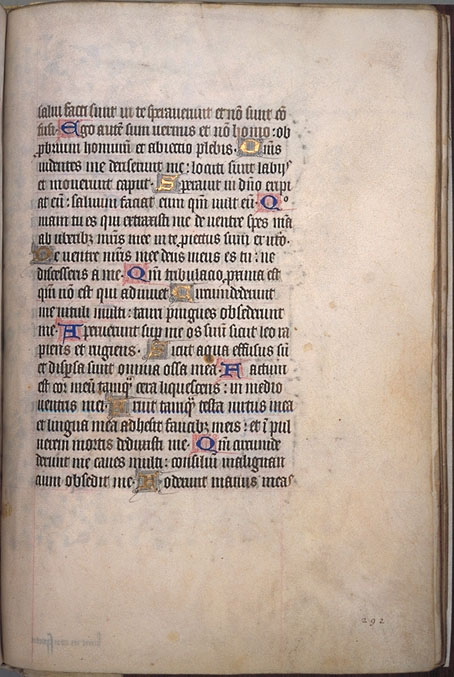 salui facti sunt in te sperauerunt et nō sunt cō
fusi. Ego autē sum uermis et nō homo: ob
probrium hominum et abiectio plebis. Om̄s
uidentes me deriserunt me: locuti sunt labijs
et mouerunt caput. Sperauit in dn̄o eripi
at eū: saluum faciat eum qm̄ uult eū. Qo
niam tu es qui extraxisti me de uentre spes mea
ab uberibꝫ mr̄is mee in te proiectus sum ex utō.
De uentre mr̄is mee deus meus es tu: ne
discesseris a me. Qm̄ tribulacio proxima est
qm̄ nō est qui adiuuet Circumdederunt
me uituli multi: tauri pingues obsederunt
me. Aperuerunt sup me os suū sicut leo ra
piens et rugiens. Sicut aqua effusus sū
et dispersa sunt omnia ossa mea. Factum
est cor meū tanqͣ cera liquescens: in medio
uentris mei. Aruit tanqͣ testa uirtus mea
et lingua mea adhesit faucibꝫ meis: et ī pul
uerem mortis deduxisti me. Qm̄ circumde
derunt me canes multi: consilium malignan
cium obsedit me. Foderunt manus meas
292